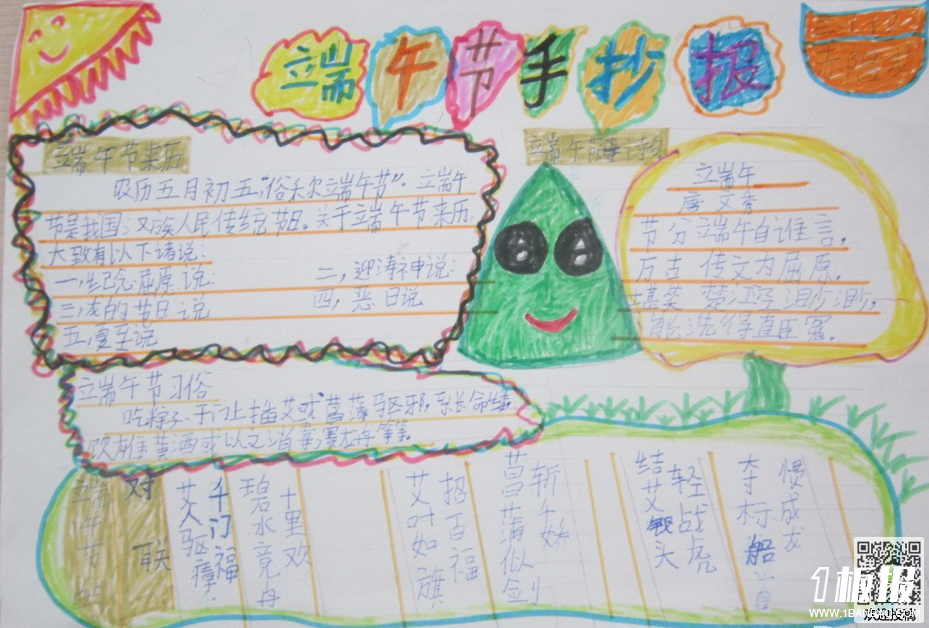 端午节手抄报
端午节来历
农历五月初五"俗称端午节"。端午
节是我国汉族人民传统节日。关于端午节来历,
大致有以下诸说:
一,纪念屈原说: 二,迎涛神说:
三,龙的节日说 四,恶日说
五,夏至说
端午
唐 文秀
节分端午自谁言,
万古传文为屈原,
堪笑楚江空渺渺,
能洗得直臣冤。
端午节习俗
吃粽子,于门上插艾或菖蒲驱邪,系长命缕
饮雄黄酒或以
端午节
对联
艾人驱瘴
千门福
碧水竞舟
十里欢
艾叶如旗
招百福
菖蒲似剑
斩千妖
结艾
头
轻战虎
夺标船
惯成龙
1板报
WWW.1BANBAO.COM
欢迎投稿